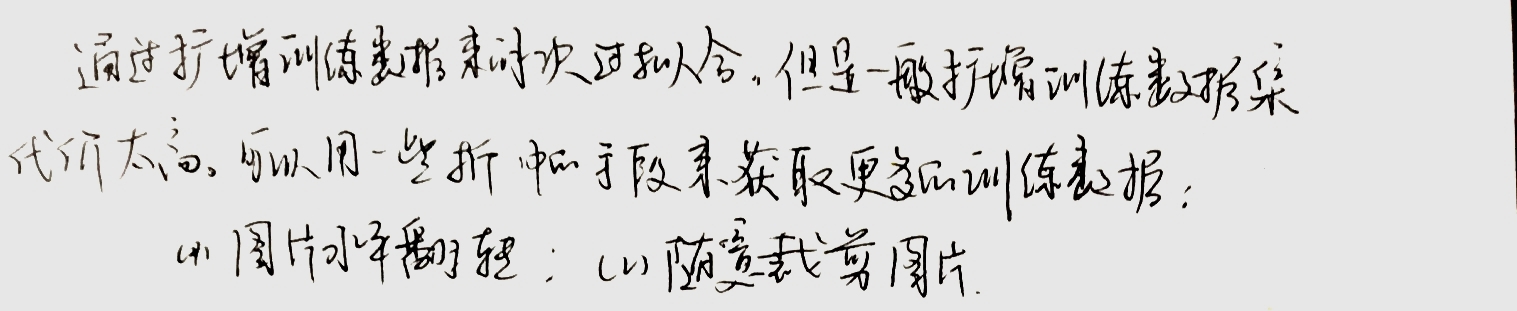 通过扩增训练数据来解决过拟合。但是一般扩增训练数据集
代价太高。可以用一些折中的手段来获取更多的训练数据：
(1) 图片水平翻转；(2) 随意裁剪图片.